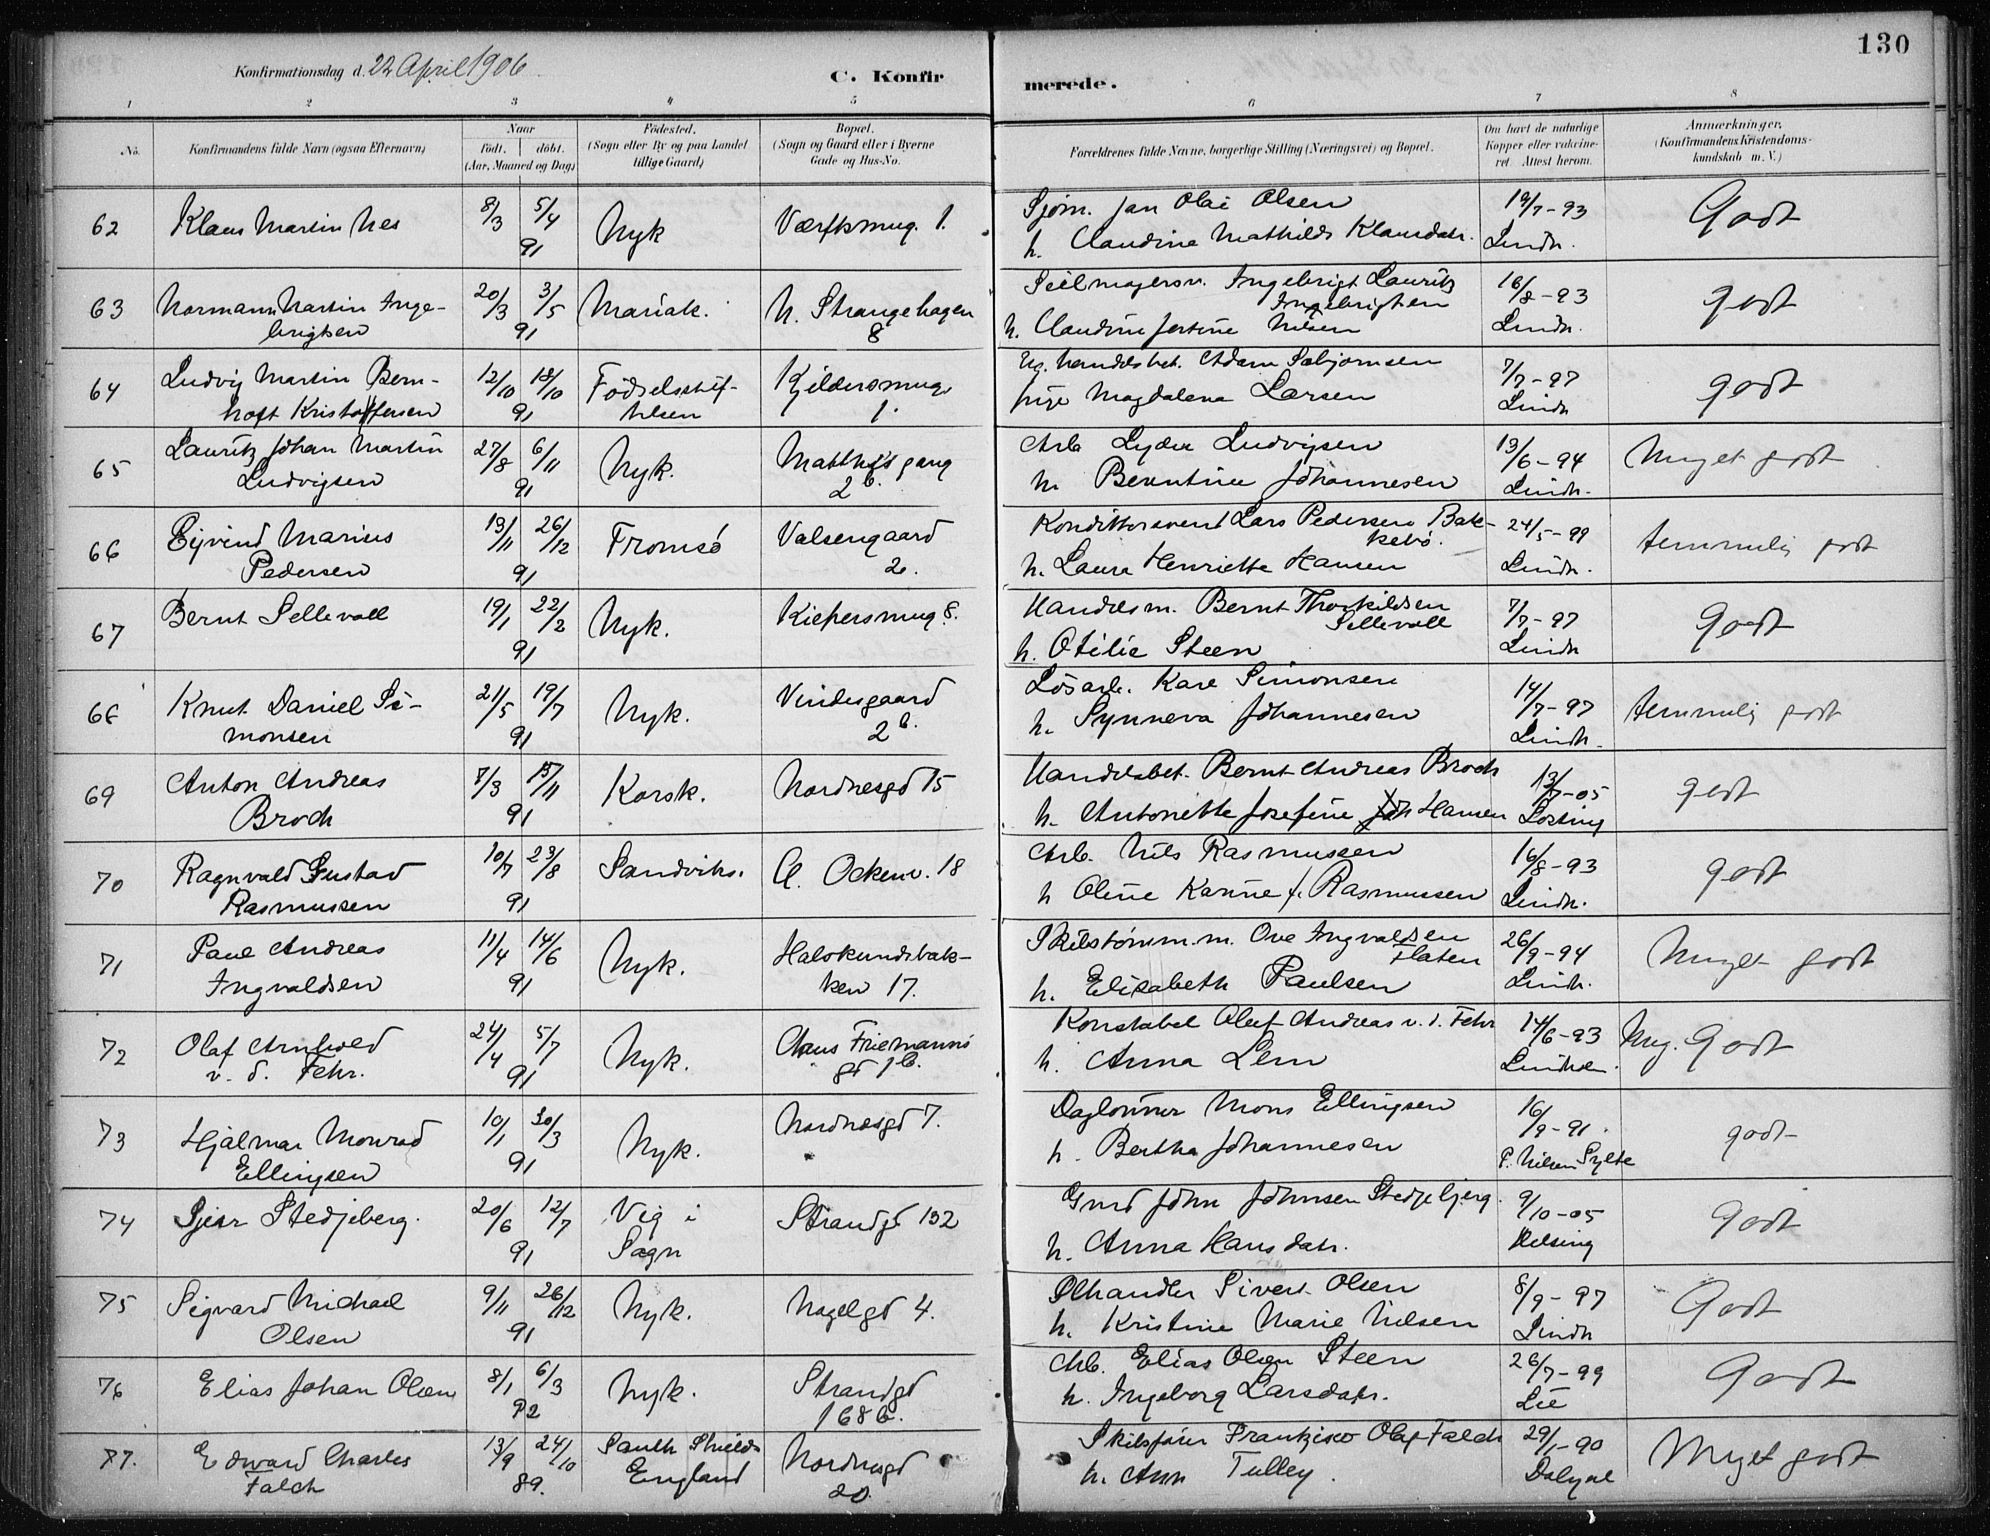 130
Konfirmationsdag d. 22 April 1906
C. Konfirmerede.
1 2 3 4 5 6 7 8
No.
Konfirmandens fulde Navn (ogsaa Efternavn)
Naar
født. døbt.
(Aar, Maaned og Dag)
Fødested.
(Sogn eller By og paa Landet
tillige Gaard)
Bopæl.
(Sogn og Gaard eller i Byerne
Gade og Hus-No.
Forældrenes fulde Navne, borgerlige Stilling (Næringsvei) og Bopæl.
Om havt de naturlige
Kopper eller vakcine-
ret. Attest herom.
Anmærkninger.
(Konfirmandens Kristendoms-
kundskab m. V.)
62 Klaus Martin Nes 8/3 5/4 91 Nyk Værftsmug. 1.
Sjøm. Jan Olai Olsen 19/7-93 Godt
h. Claudine Mathilde Klausdatr. Lindh.
63 Normann Martin Inge-
brigtsen 20/3 3/5 91 Mariak. N. Strangehagen
8
Seilmagersv. Ingebrigt Lauritz
Ingebrigtsen 16/8-93 godt
h. Claudine Jertine Nilsen Lindh.
64 Ludvig Martin Bern-
hoft Kristoffersen 12/10 18/10 91 Fødselsstif-
telsen Kjeldersmug.
1.
Ug. handelsbet. Adam Sæbjørnsen 7/7-97 godt
pige Magdalena Larsen Lindh
65 Lauritz Johan Martin
Ludvigsen 27/8 6/11 91 Nyk. Matthisgang
2b.
Arb Lyder Ludvigsen 13/6-94 Meget godt
h. Berntine Johannesen Lindh.
66 Eyvind Marius
Pedersen 13/11 26/12 91 Tromsø Valsengaard
2.
Konditorsvend Lars Pedersen Bak-
kebø. 24/5-99 temmelig godt
h. Laura Henriette Hansen Lindh.
67 Bernt Sellevoll 19/1 22/2 91 Nyk. Kiepersmug 8.
Handelsm. Bernt Thorkildsen
Sellevoll 7/7-97 Godt
h. Otilie Steen Lindh
68 Knut Daniel Si-
monsen 21/5 19/7 91 Nyk. Vindesgaard
2b.
Løsarb. Kare Simonsen 14/7-97 temmelig godt
h. Synneva Johannesen Lindh.
69 Anton Andreas
Broch 7/3 15/11 91 Korsk. Nordnesgd 15
Handelsbet. Bernt Andreas Broch 13/7-05 godt
h. Antonette Josefine Hansen Losting
70 Ragnvald Gustav
Rasmussen 10/7 23/8 91 Sandviks. A. Ockenv. 18
Arb. Nils Rasmussen 16/8-93 godt
h Oline Karine f. Rasmussen Lindh.
71 Paul Andreas
Ingvaldsen 11/4 14/6 91 Nyk. Halvkandebak-
ken 17.
Skibstømm.m. Ove Ingvaldsen
Flaten 26/9-94 Meget godt
h. Elisabeth Paulsen Lindh.
72 Olaf Arnhold
v. d. Fehr. 24/4 5/7 91 Nyk. Claus Friemanns
gd 1b.
Konstabel Oluf Andreas v. d. Fehr 14/6-93 Meg. Godt
h. Anna Lem
73 Hjalmar Monrad
Ellingsen 10/1 30/3 91 Nyk. Nordnesgd 7.
Daglønner Mons Ellingsen 16/9-91. godt
h. Bertha Johannesen P. Nilsen Sylte
74 Sjur Stedjeberg. 20/6 12/7 91 Vig i
Sogn Strandgd 132
Grd John Johnsen Stedjebjerg. 9/10-05 Godt
h. Anna Hansdatr. Helsing
75 Sigvard Michael
Olsen 9/11 26/12 91 Nyk. Nagelgd 4.
Ølhandler Sivert Olsen 8/9-97 Godt
h. Kristine Marie Nilsen Lindh
76 Elias Johan Olsen 8/1 6/3 92 Nyk. Strandgd
168b.
Arb. Elias Olsen Steen 26/7-99 Godt
h. Ingeborg Larsdatr. Lie
77. Edward Charles
Falch 13/9 24/10 89. South Shields
England Nordnesgd
20.
Skibsfører Frantzisco Olaf Falch 29/1-90 Meget godt
h. Ann Tulley.